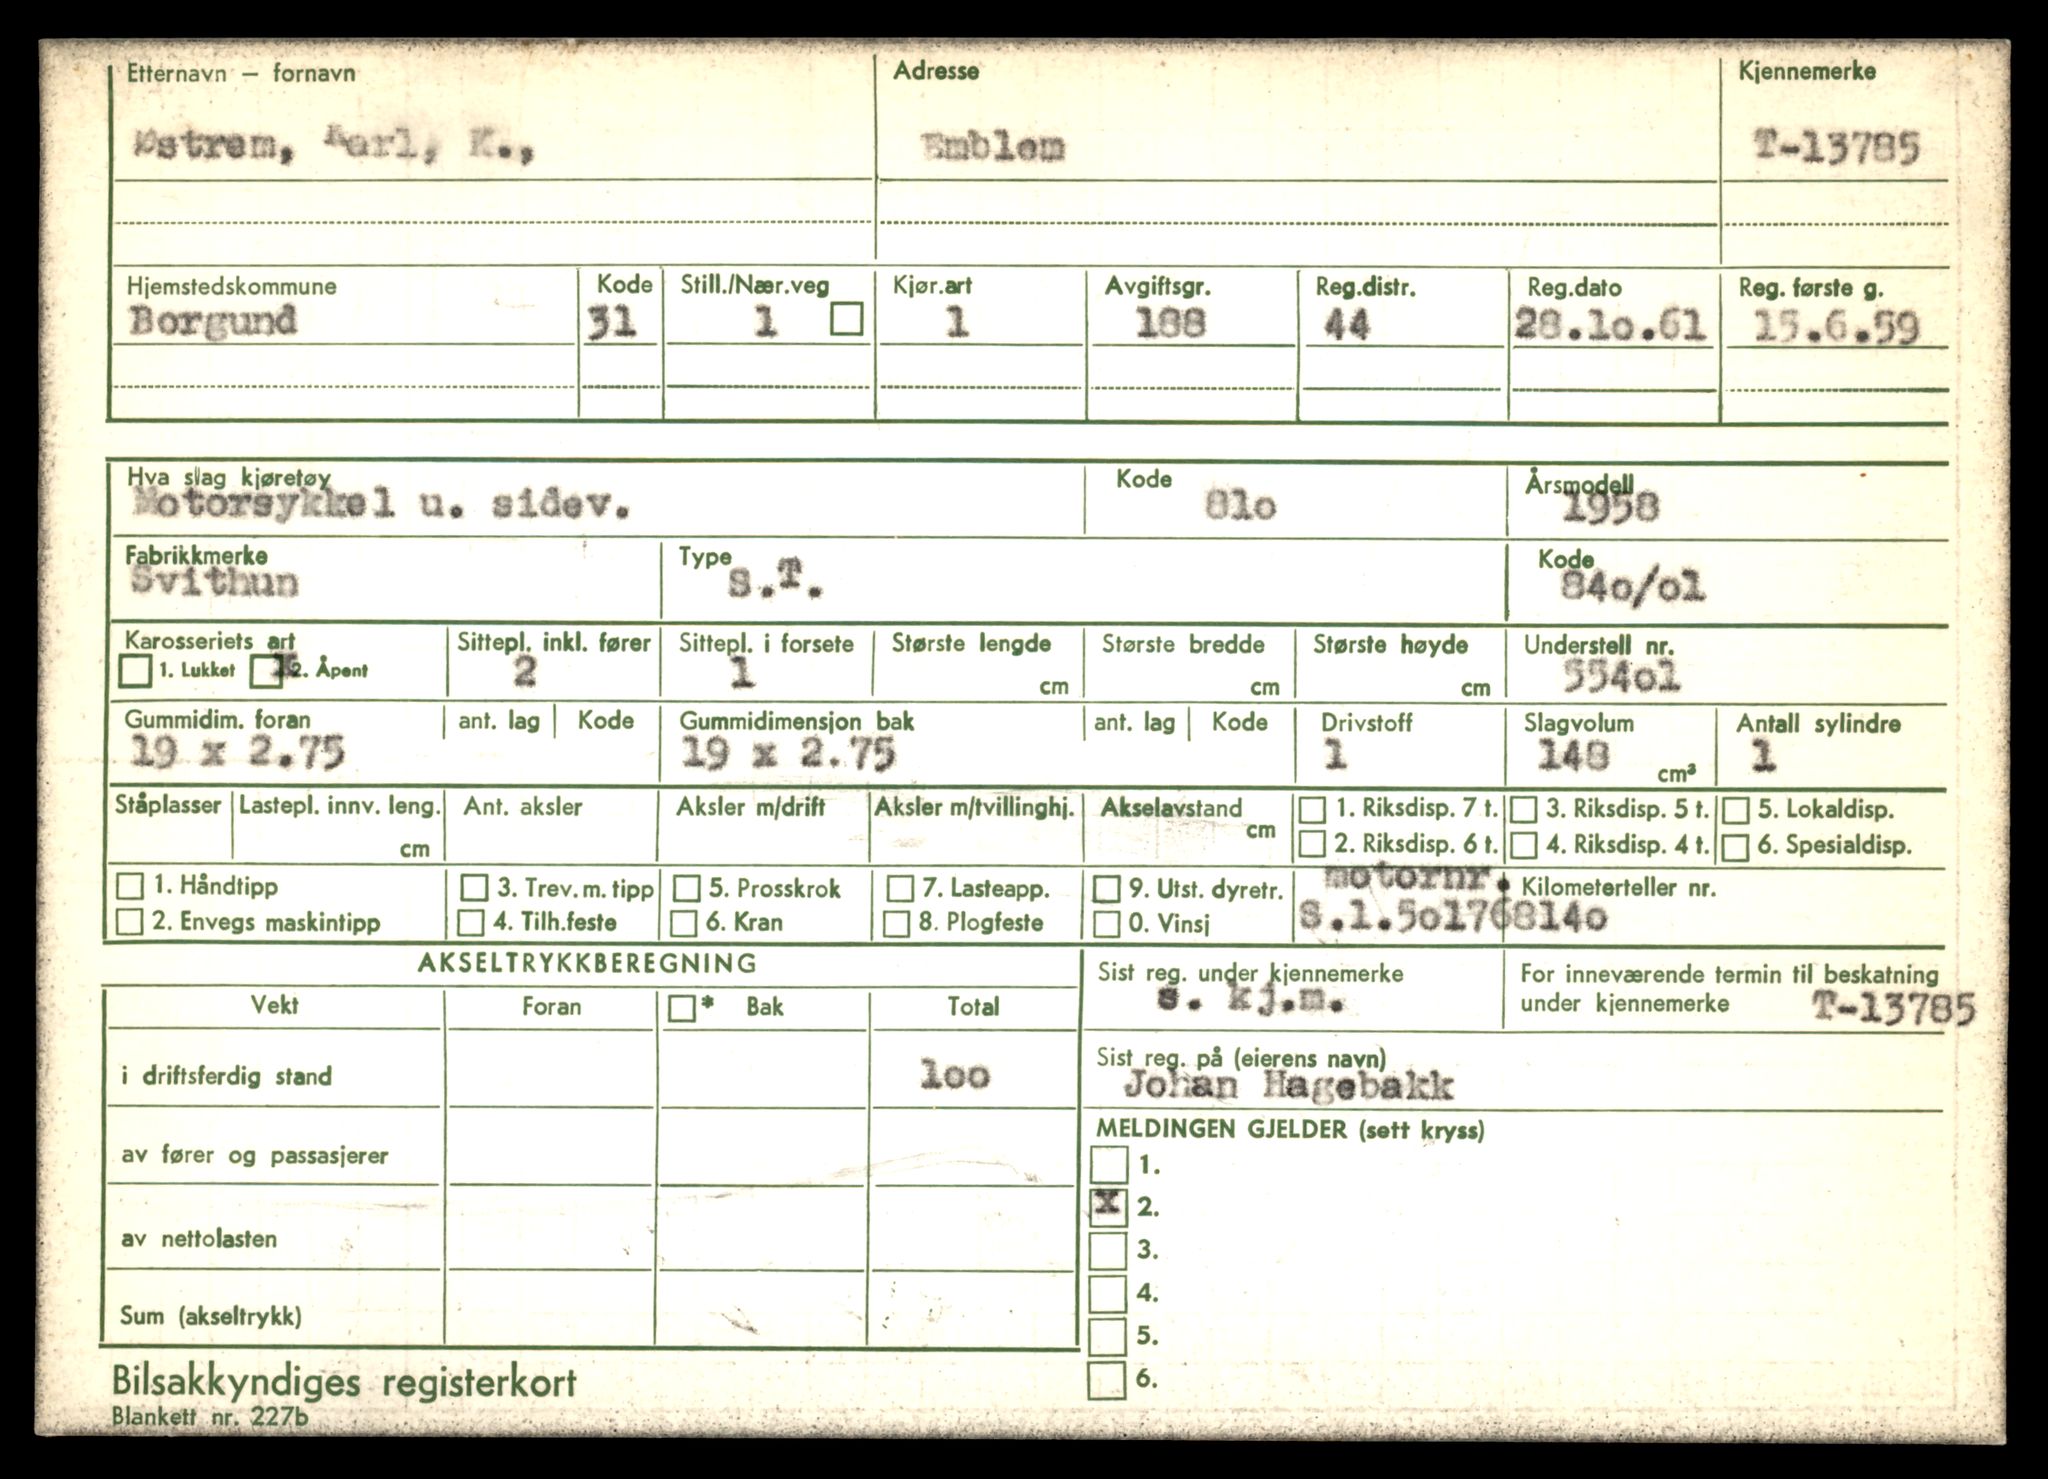 Etternavn — fornavn Adresse Kjennemerke
Østrem, Karl, K., Emblem T-13785
Hjemstedskommune Kode Still./Nær.veg Kjør.art Avgiftsgr. Reg.distr. Reg.dato Reg. første g.
Borgund 31 1 1 188 44 28.1o.61 15.6.59
Hva slag kjøretøy Kode Årsmodell
Motorsykkel u. sidev. 81o 1958
Fabrikkmerke Type Kode
Svithun S.T. 84o/o1
Karosseriets art Sittepl. inkl. fører Sittepl. i forsete Største lengde Største bredde Største høyde Understell nr.
1. Lukket x 2. Åpent 2 1 cm cm cm 554o1
Gummidim. foran ant. lag Kode Gummidimensjon bak ant. lag Kode Drivstoff Slagvolum Antall sylindre
19 x 2.75 19 x 2.75 1 148 cm³ 1
Ståplasser Lastepl. innv. leng. Ant. aksler Aksler m/drift Aksler m/tvillinghj. Akselavstand 1. Riksdisp. 7 t. 3. Riksdisp. 5 t. 5. Lokaldisp.
cm cm 2. Riksdisp. 6 t. 4. Riksdisp. 4 t. 6. Spesialdisp.
1. Håndtipp 3. Trev. m. tipp 5. Prosskrok 7. Lasteapp. 9. Utst. dyretr. motornr. Kilometerteller nr.
2. Envegs maskintipp 4. Tilh.feste 6. Kran 8. Plogfeste 0. Vinsj S.1.5o176814o
AKSELTRYKKBEREGNING
Vekt Foran * Bak Total
i driftsferdig stand 1oo
av fører og passasjerer
av nettolasten
Sum (akseltrykk)
Sist reg. under kjennemerke For inneværende termin til beskatning
s. kj.m. under kjennemerke T-13785
Sist reg. på (eierens navn)
Johan Hagebakk
MELDINGEN GJELDER (sett kryss)
1.
x 2.
3.
4.
5.
6.
Bilsakkyndiges registerkort
Blankett nr. 227b